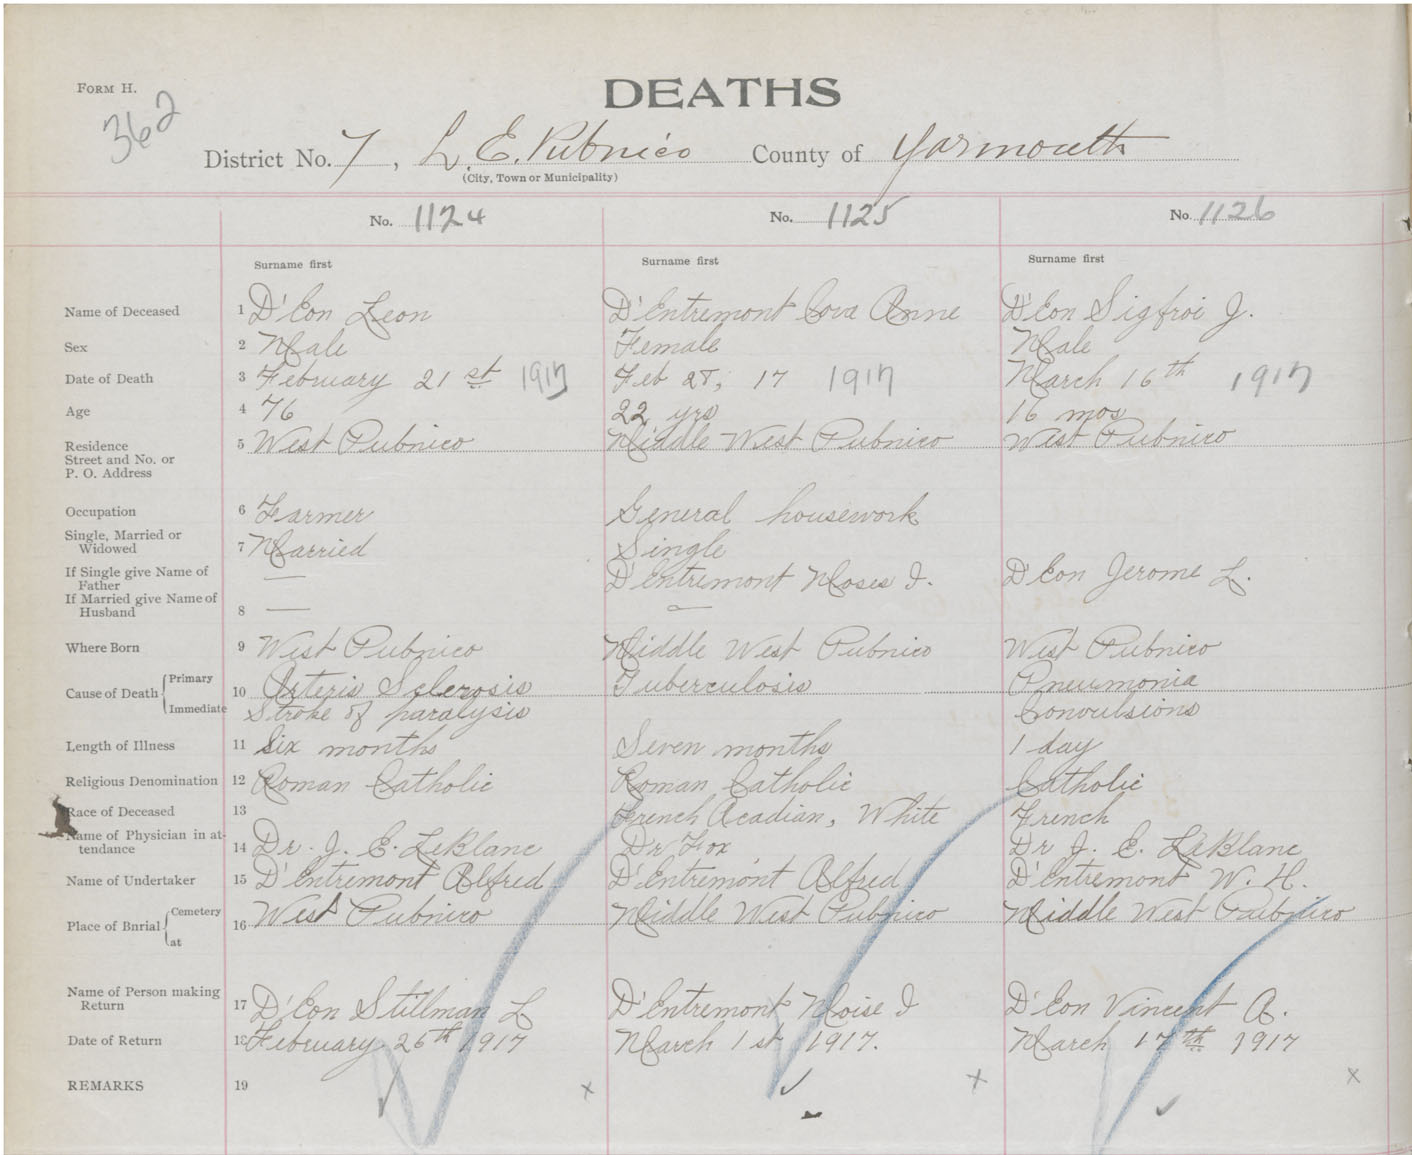 FORM H.
362
DEATHS
District No. 7, L. E. Pubnico County of Yarmouth
(City, Town or Municipality)
No. 1124 No. 1125 No. 1126
Surname first Surname first Surname first
Name of Deceased 1 D'Eon Leon D'Entremont Cova Anne D'Eon Sigfroi J.
Sex 2 Male Female Male
Date of Death 3 February 21st 1917 Feb 28, 17 1917 March 16th 1917
Age 4 76 22 yrs 16 mos
Residence Street and No. or P. O. Address 5 West Pubnico Middle West Pubnico West Pubnico
Occupation 6 Farmer General housework
Single, Married or Widowed 7 Married Single
If Single give Name of Father — D'Entremont Moses I. D'Eon Jerome L.
If Married give Name of Husband 8 — —
Where Born 9 West Pubnico Middle West Pubnico West Pubnico
Cause of Death Primary 10 Arteris Sclerosis Tuberculosis Pneumonia
Immediate Stroke of paralysis Convulsions
Length of Illness 11 Six months Seven months 1 day
Religious Denomination 12 Roman Catholic Roman Catholic Catholic
Race of Deceased 13 French Acadian, White French
Name of Physician in attendance 14 Dr. J. E. LeBlanc Dr Fox Dr J. E. LeBlanc
Name of Undertaker 15 D'Entremont Alfred D'Entremont Alfred D'Entremont W. H.
Place of Bnrial Cemetery at 16 West Pubnico Middle West Pubnico Middle West Pubnico
Name of Person making Return 17 D'Eon Stillman L D'Entremont Moise I D'Eon Vincent A.
Date of Return 18 February 26th 1917 March 1st 1917. March 17th 1917
REMARKS 19 x x x